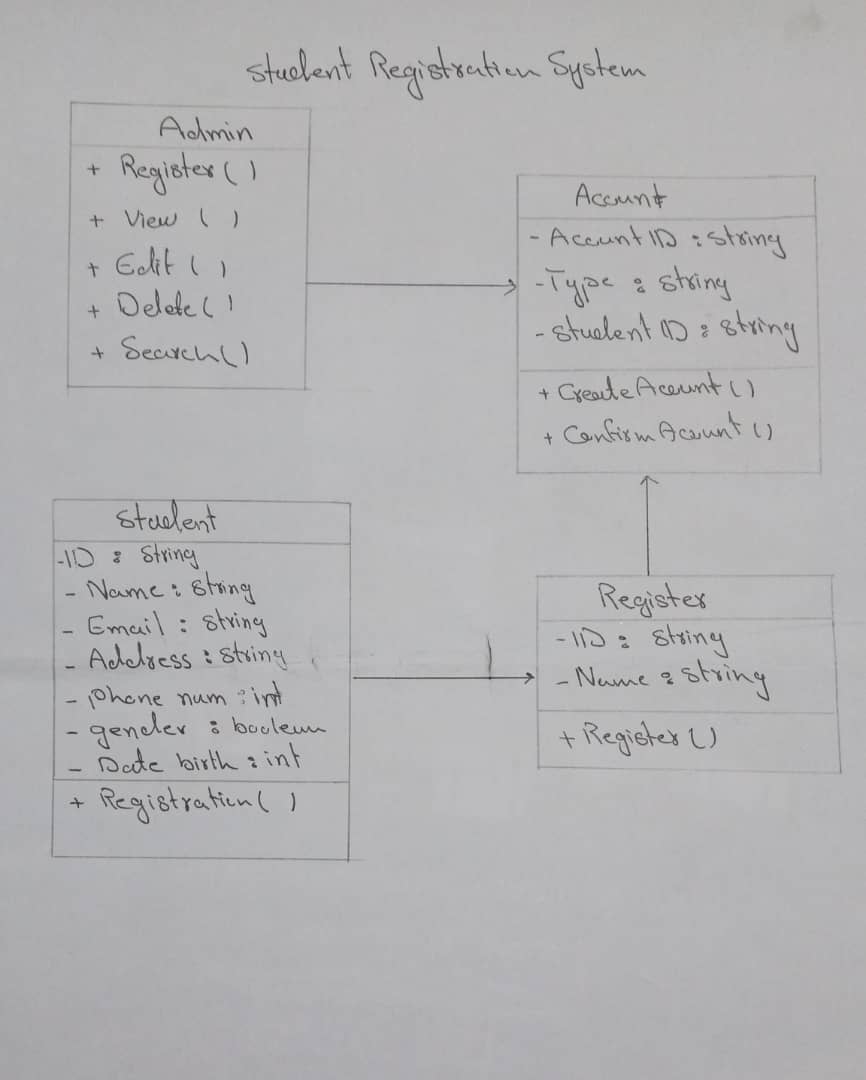 Student Registration System
Admin
+ Register ( )
+ View ( )
+ Edit ( )
+ Delete ( )
+ Search ( )
Account
- Account ID : String
- Type : String
- Student ID : String
+ Create Account ( )
+ Confirm Account ( )
Student
- ID : String
- Name : String
- Email : String
- Address : String
- phone num : int
- gender : boolean
- Date birth : int
+ Registration ( )
1
Register
- ID : String
- Name : String
+ Register ( )